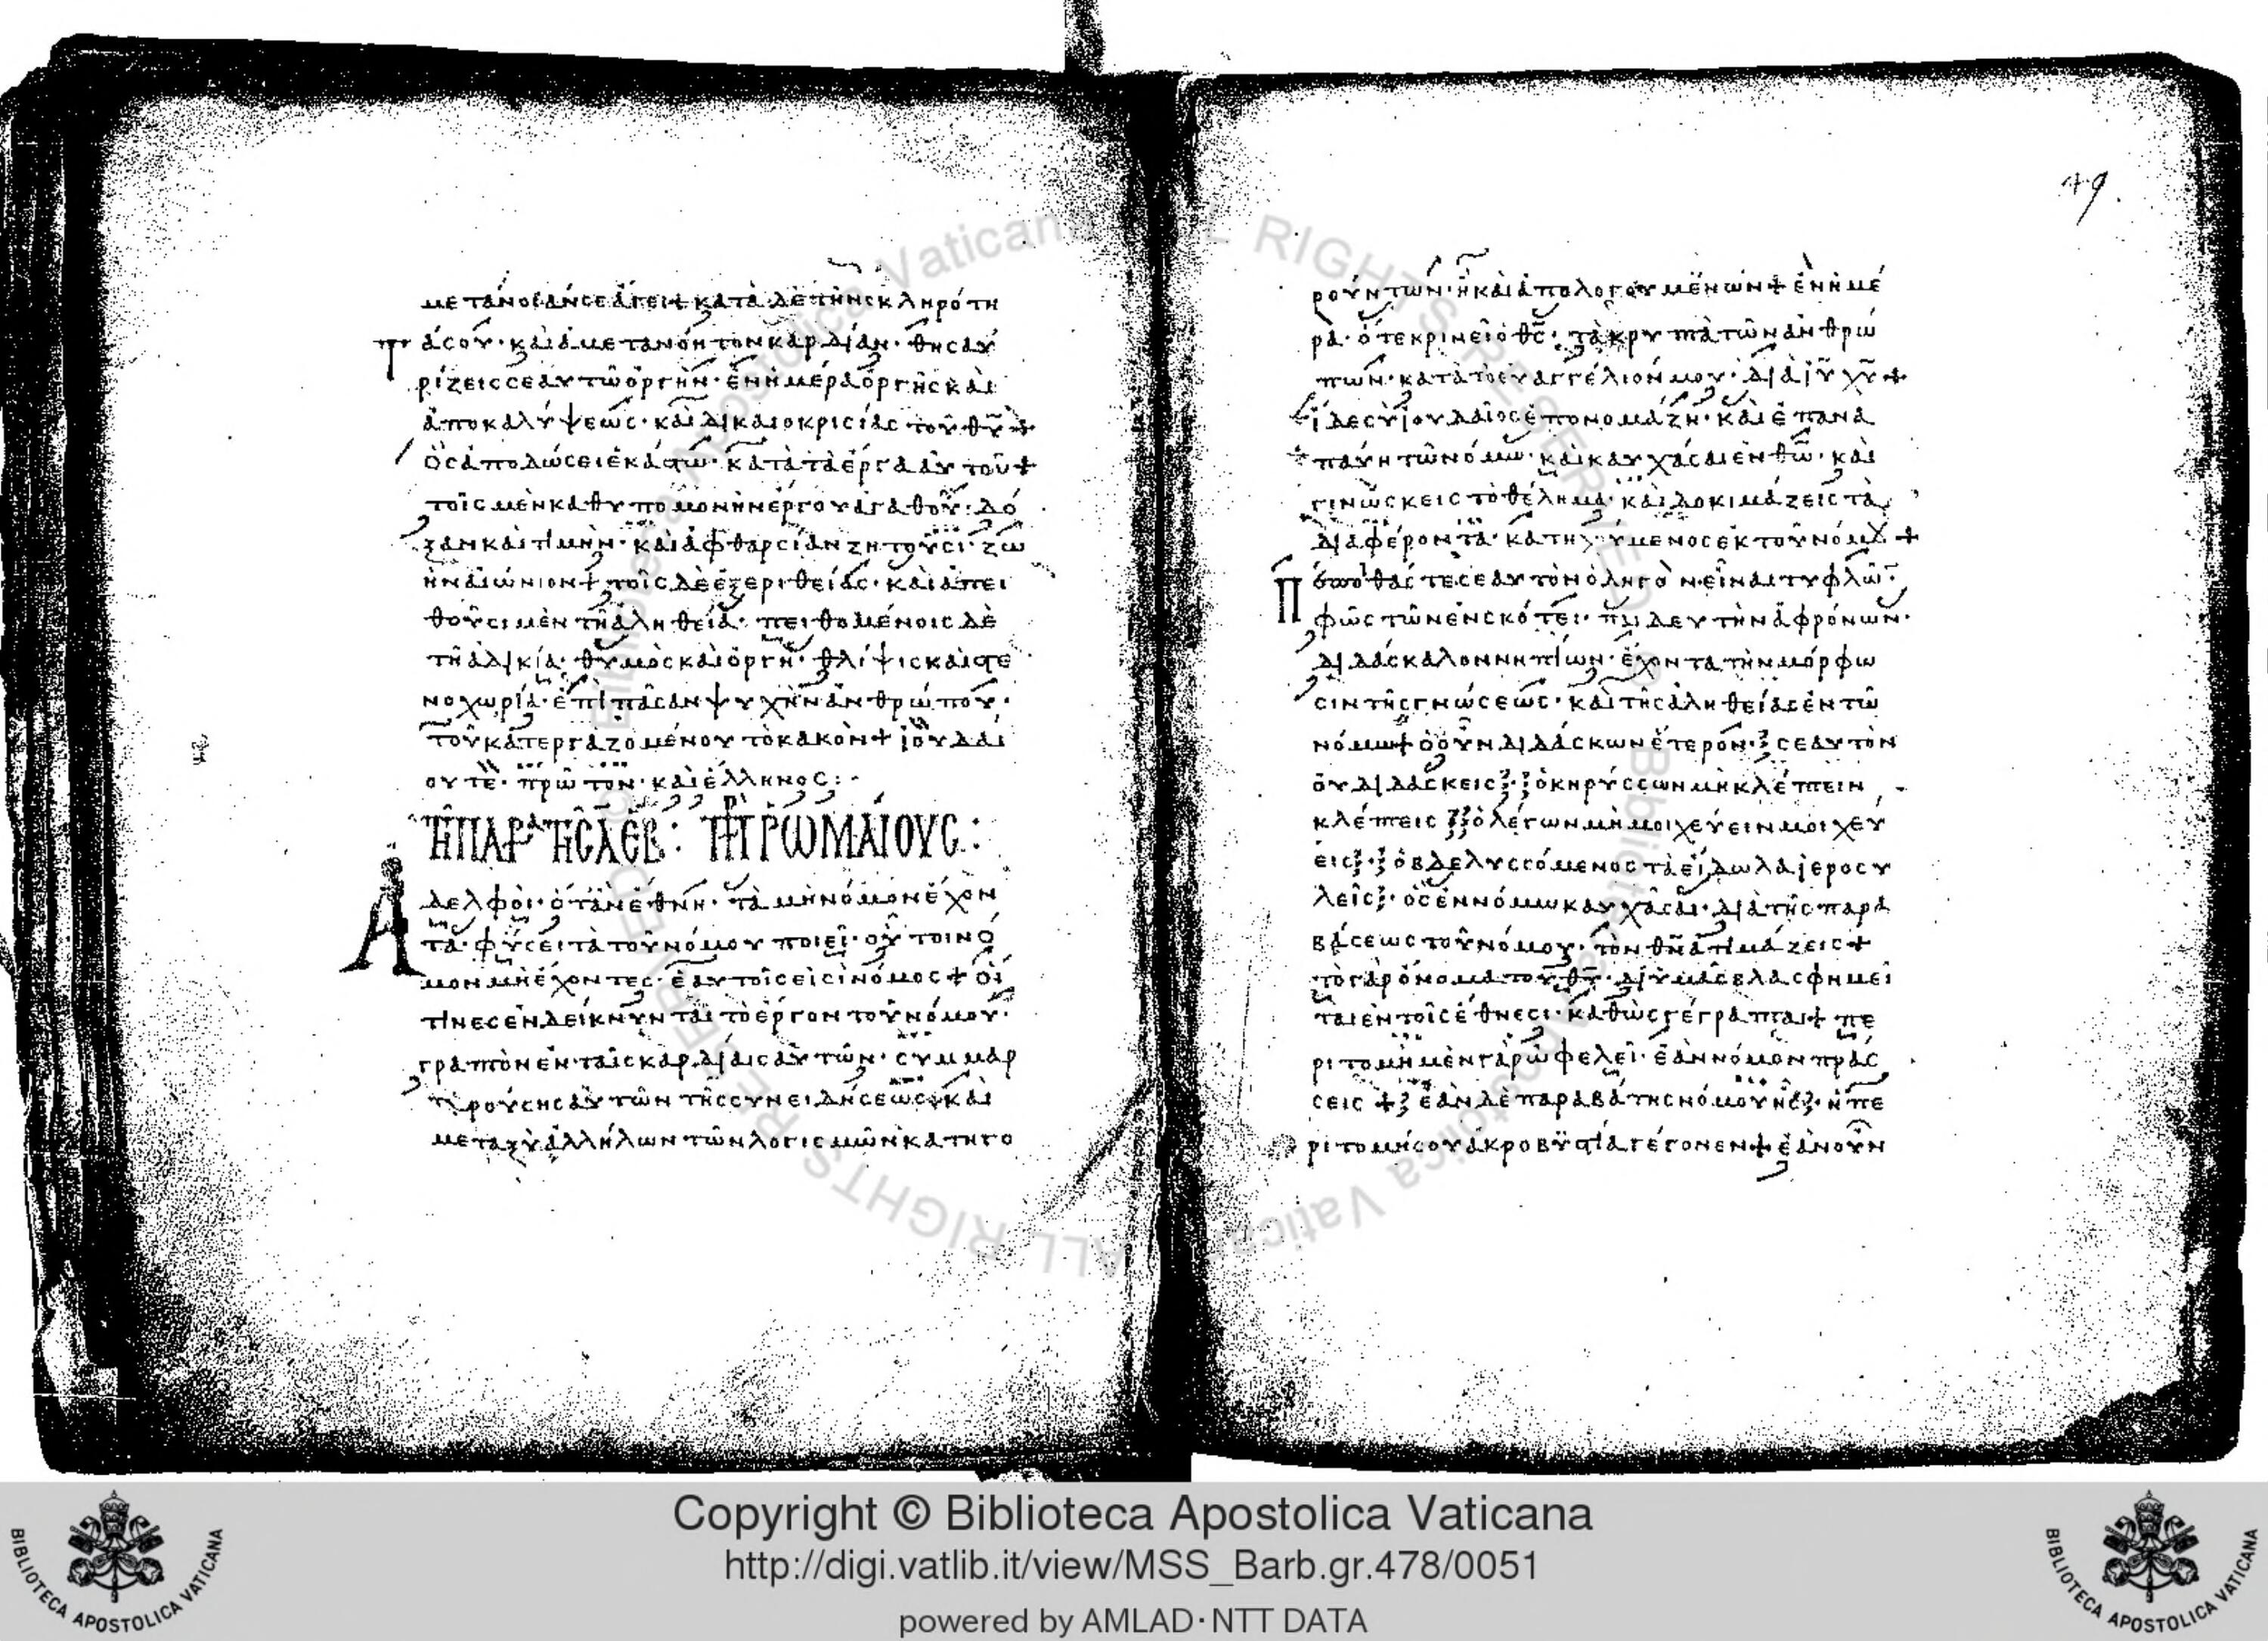 μετάνοιάν σε ἄγει + κατὰ δὲ τὴν σκληρότη
τά σου · καὶ ἀμετανόητον καρδίαν · θησαυ
ρίζεις σεαυτῶ ὀργὴν · ἐν ἡμέρα ὀργῆς καὶ
ἀποκαλύψεως · καὶ δικαιοκρισίας τοῦ θυ +
Ὃς ἀποδώσει ἑκάστω · κατὰ τὰ ἔργα αὐτοῦ +
τοῖς μὲν καθ υπομονὴν ἔργου ἀγαθοῦ · δό
ξαν καὶ τιμὴν · καὶ ἀφθαρσίαν ζητοῦσι · ζω
ὴν αἰώνιον + τοῖς δὲ ἐξ εριθείας · καὶ ἀπει
θοῦσι μὲν τῆ ἀληθεία · πειθομένοις δὲ
τῆ ἀδικία · θυμὸς καὶ ὀργὴ · θλίψις καὶ στε
νοχωρία · ἐπὶ πᾶσαν ψυχὴν ἀνθρώπου ·
τοῦ κατεργαζομένου τὸ κακὸν + ἰουδαί
ου τὲ · πρῶτον · καὶ ἕλληνος :·
ΡΩΜΑΙΟΥΣ :
Αδελφοὶ · ὅταν ἔθνη · τὰ μὴ νόμον ἔχον
τα · φύσει τὰ τοῦ νόμου ποιεῖ · οὗτοι νό
μον μὴ ἔχοντες · ἑαυτοῖς εἰσὶ νόμος + Οἵ
τινες ἐνδείκνυνται τὸ ἔργον τοῦ νόμου ·
γραπτὸν ἐν ταῖς καρδίαις αὐτῶν · συμμαρ
τυρούσης αὐτῶν τῆς συνειδήσεως · καὶ
μεταξὺ ἀλλήλων τῶν λογισμῶν κατηγο
49.
ρούντων · ἢ καὶ ἀπολογουμένων + ἐν ἡμέ
ρα · ὅτε κρινεῖ ὁ θς · τὰ κρυπτὰ τῶν ἀνθρώ
πων · κατὰ τὸ εὐαγγέλιόν μου · διὰ ιυ χυ +
ἴδε σὺ ἰουδαῖος ἐπονομάζη · καὶ ἐπανα
παύη τῶ νόμω · καὶ καυχᾶσαι ἐν θω · καὶ
γινώσκεις τὸ θέλημα · καὶ δοκιμάζεις τὰ
διαφέροντα · κατηχούμενος ἐκ τοῦ νόμου +
φῶς τῶν ἐν σκότει · παιδευτὴν ἀφρόνων ·
διδάσκαλον νηπίων · ἔχοντα τὴν μόρφω
σιν τῆς γνώσεως · καὶ τῆς ἀληθείας ἐν τῶ
νόμω + ὁ οὖν διδάσκων ἕτερον · σεαυτὸν
οὐ διδάσκεις · ὁ κηρύσσων μὴ κλέπτειν
κλέπτεις ὁ λέγων μὴ μοιχεύειν μοιχεύ
εις · ὁ βδελυσσόμενος τὰ εἴδωλα ἱεροσυ
λεῖς · ὃς ἐν νόμω καυχᾶσαι · διὰ τῆς παρα
βάσεως τοῦ νόμου · τὸν θν ἀτιμάζεις +
τὸ γὰρ ὄνομα τοῦ θυ · δι ὑμᾶς βλασφημεῖ
ται ἐν τοῖς ἔθνεσι · καθὼς γέγραπται + πε
ριτομὴ μὲν γὰρ ὠφελεῖ · ἐὰν νόμον πράσ
σεις + ἐὰν δὲ παραβάτης νόμου ἦς · ἡ πε
ριτομή σου ἀκροβυστία γέγονεν + ἐὰν οὖν
Copyright © Biblioteca Apostolica Vaticana
http://digi.vatlib.it/view/MSS_Barb.gr.478/0051
powered by AMLAD·NTT DATA
BIBLIOTECA APOSTOLICA VATICANA
BIBLIOTECA APOSTOLICA VATICANA